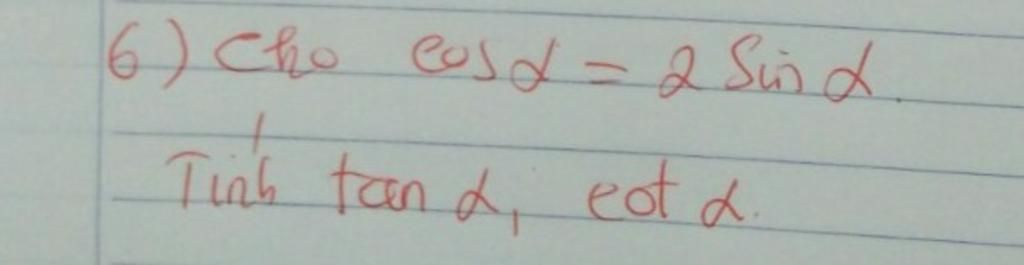 6) Cho cos α = 2 Sin α.
Tính tan α, cot α.